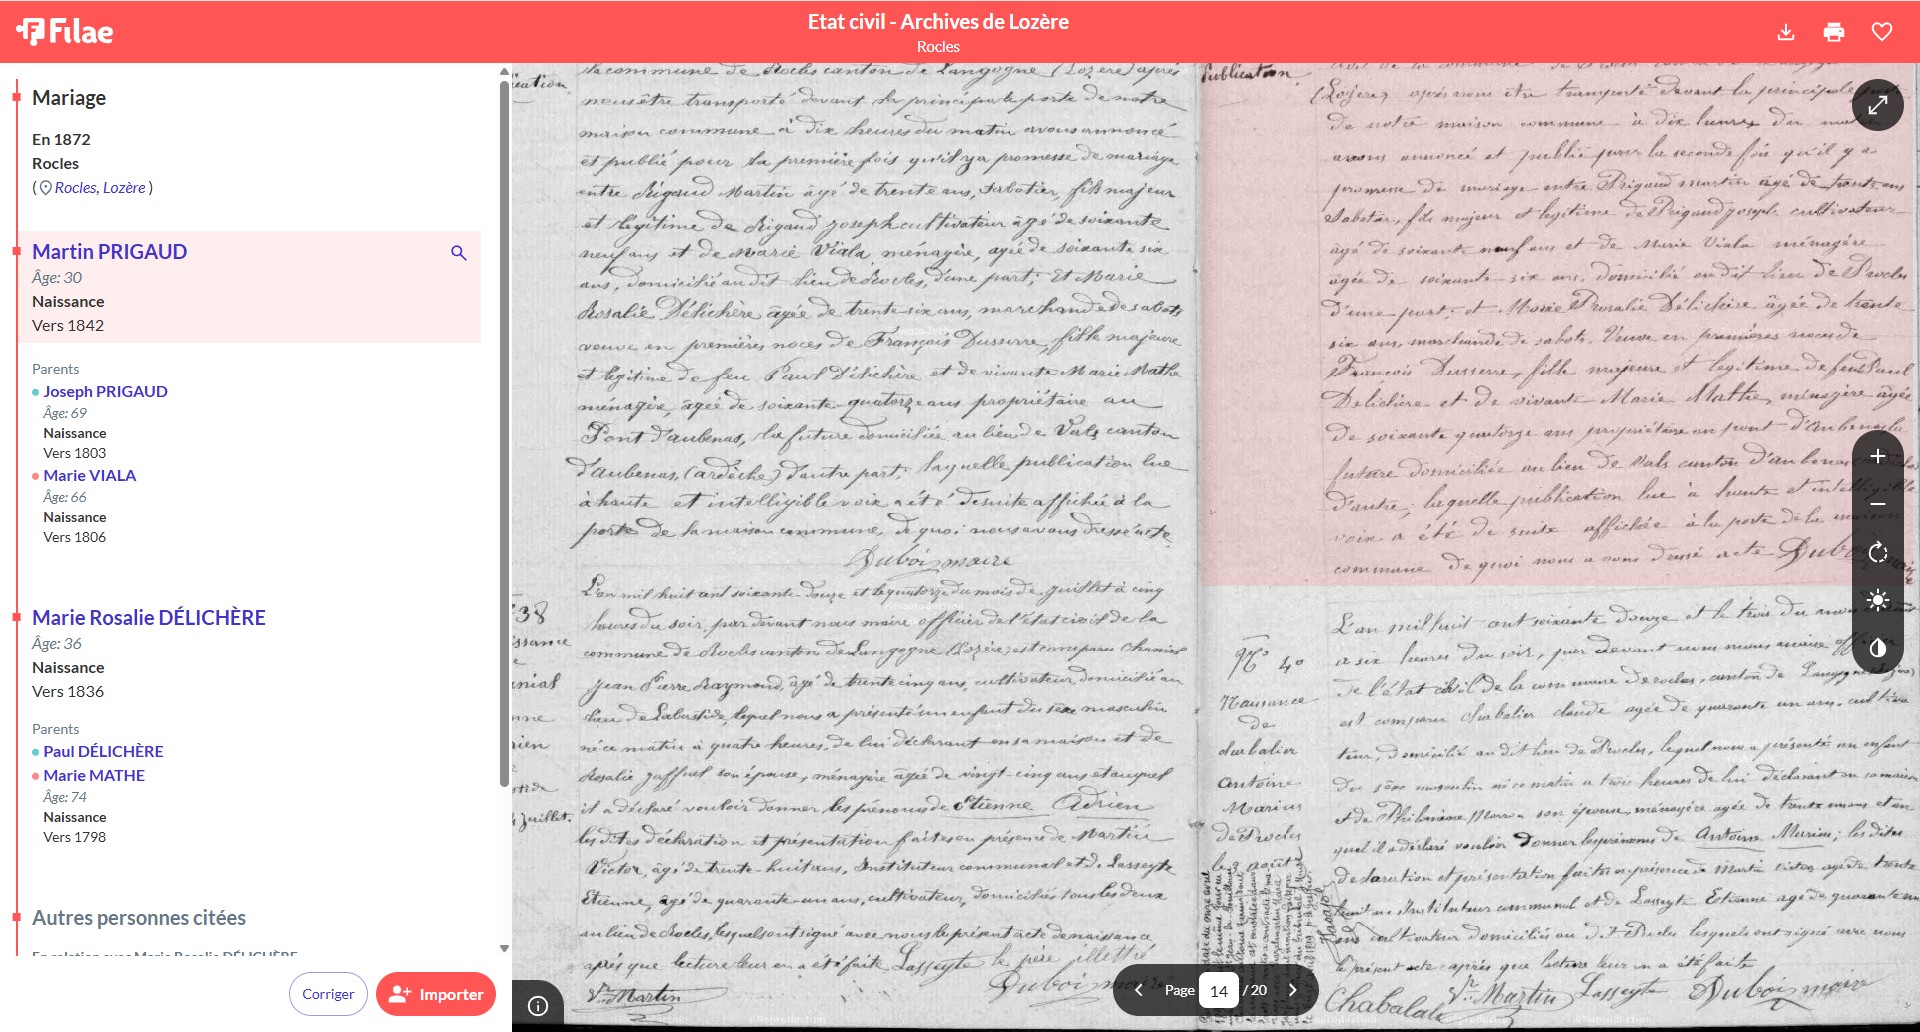 Filae
Etat civil - Archives de Lozère
Rocles
Mariage
En 1872
Rocles
( Rocles, Lozère )
Martin PRIGAUD
Âge: 30
Naissance
Vers 1842
Parents
Joseph PRIGAUD
Âge: 69
Naissance
Vers 1803
Marie VIALA
Âge: 66
Naissance
Vers 1806
Marie Rosalie DÉLICHÈRE
Âge: 36
Naissance
Vers 1836
Parents
Paul DÉLICHÈRE
Marie MATHE
Âge: 74
Naissance
Vers 1798
Autres personnes citées
En relation avec Marie Rosalie DÉLICHÈRE
Corriger
Importer
la commune de Rocles canton de Langogne (Lozère) après
nous être transporté devant la principale porte de notre
maison commune à dix heures du matin avons annoncé
et publié pour la première fois qu'il y a promesse de mariage
entre Rigaud Martin âgé de trente ans, sabotier, fils majeur
et légitime de Rigaud Joseph cultivateur âgé de soixante
neuf ans et de Marie Viala, ménagère, agée de soixante six
ans, domicilié au dit lieu de Rocles, d'une part; Et Marie
Rosalie Délichère âgée de trente-six ans, marchande de sabots
veuve en premières noces de François Dusserre, fille majeure
et légitime de feu Paul Délichère et de vivante Marie Mathe
ménagère, âgée de soixante-quatorze ans propriétaire au
Pont d'aubenas, la future domiciliée au lieu de Vals canton
d'aubenas, (ardèche) d'autre part; laquelle publication lue
à haute et intelligible voix a été de suite affichée à la
porte de la maison commune, de quoi nous avons dressé acte.
Dubois maire
L'an mil huit cent soixante-douze et le quatorze du mois de juillet à cinq
heures du soir, par devant nous maire officier de l'état civil de la
commune de Rocles canton de Langogne (Lozère) est comparu Chanial
Jean Pierre Raymond, âgé de trente cinq ans, cultivateur, domicilié au
lieu de Labastide, lequel nous a présenté un enfant du sexe masculin
né ce matin à quatre heures, de lui déclarant en sa maison et de
Rosalie Jaffuel son épouse, ménagère âgée de vingt-cinq ans et auquel
il a déclaré vouloir donner les prénoms de Etienne Adrien
les dites déclaration et présentation faites en présence de Martin
Victor, âgé de trente-huit ans, Instituteur communal et de Lasseyte
Etienne, âgé de quarante-un ans, cultivateur, domiciliés tous les deux
au lieu de Rocles, lesquels ont signé avec nous le présent acte de naissance
après que lecture leur en a été faite Lasseyte le père illettré
Vr Martin Dubois maire
38
Juillet.
Publication
(Lozère) après nous être transporté devant la principale
de notre maison commune à dix heures du matin
avons annoncé et publié pour la seconde fois qu'il y a
promesse de mariage entre Rigaud martin âgé de trente ans
Sabotier, fils majeur et légitime de Rigaud joseph cultivateur
âgé de soixante neuf ans et de Marie Viala ménagère
agée de soixante-six ans, domicilié au dit lieu de Rocles
d'une part; et Marie Rosalie Délichère âgée de trente
six ans, marchande de sabots. Veuve en premières noces de
François Dusserre, fille majeure et légitime de feu Paul
Délichère et de vivante Marie Mathe, ménagère âgée
de soixante quatorze ans propriétaire au pont d'aubenas la
future domiciliée au lieu de Vals canton d'aubenas
d'autre; laquelle publication lue à haute et intelligible
voix a été de suite affichée à la porte de la maison
commune de quoi nous avons dressé acte Dubois maire
No 40
Naissance
de
chabalier
Antoine
Marius
de Rocles
le 3 août
L'an mil huit cent soixante douze et le trois du mois
a six heures du soir, par devant nous maire officier
de l'état civil de la commune de rocles, canton de Langogne
est comparu chabalier claude agée de quarante un ans, cultiva
teur, domicilié au dit lieu de Rocles, lequel nous a présenté un enfant
du sexe masculin né ce matin a trois heures de lui déclarant en sa maison
et de Philomène son épouse, ménagère agée de trente un ans et au
quel il a déclaré vouloir Donner les prénoms de Antoine Marius; les dites
declaration et présentation faites en présence de Martin victor agé de trente
huit ans Instituteur communal et de Lasseyte Etienne agé de quarante un
ans cultivateur domiciliés au dit Rocles lesquels ont signé avec nous
le présent acte après que lecture leur en a été faite
Chabalier Vr Martin Lasseyte Dubois maire
Page 14 / 20